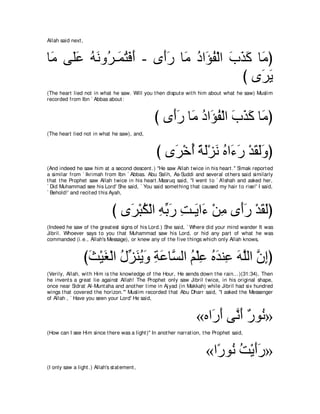 Allah said next,
مَا يَرَى - أَفَتُمَـرُونَهُ عَلَى مَا
(مَا كَذَبَ الْفُؤَادُ مَا رَأَى
يَرَى )
(The heart lied not in what he saw. Will you then dispute with him about what he saw) Muslim
recorded from Ibn `Abbas about:
(مَا كَذَبَ الْفُؤَادُ مَا رَأَى )
(The heart lied not in what he saw), and,
(وَلَقَدْ رَءَاهُ نَزْلَةً أُخْرَى )
(And indeed he saw him at a second descent.) "He saw Allah twice in his heart.'' Simak reported
a similar from `Ikrimah from Ibn `Abbas. Abu Salih, As-Suddi and several others said similarly
that the Prophet saw Allah twice in his heart. Masruq said, "I went to `A'ishah and asked her,
`Did Muhammad see his Lord' She said, `You said something that caused my hair to rise!' I said,
`Behold!' and recited this Ayah,
(لَقَدْ رَأَى مِنْ ءَايَـتِ رَبِّهِ الْكُبْرَى )
(Indeed he saw of the greatest signs of his Lord.) She said, `Where did your mind wander It was
Jibril. Whoever says to you that Muhammad saw his Lord, or hid any part of what he was
commanded (i.e., Allah's Message), or knew any of the five things which only Allah knows,
(إِنَّ اللَّهَ عِندَهُ عِلْمُ السَّاعَةِ وَيُنَزِّلُ الْغَيْثَ)
(Verily, Allah, with Him is the knowledge of the Hour, He sends down the rain...)(31:34), Then
he invents a great lie against Allah! The Prophet only saw Jibril twice, in his original shape,
once near Sidrat Al-Muntaha and another time in Ajyad (in Makkah) while Jibril had six hundred
wings that covered the horizon.''' Muslim recorded that Abu Dharr said, "I asked the Messenger
of Allah , `Have you seen your Lord' He said,
«نُورٌ أَنَّى أَرَاهُ»
(How can I see Him since there was a light)" In another narration, the Prophet said,
«رَأَيْتُ نُورًا»
(I only saw a light.) Allah's statement,